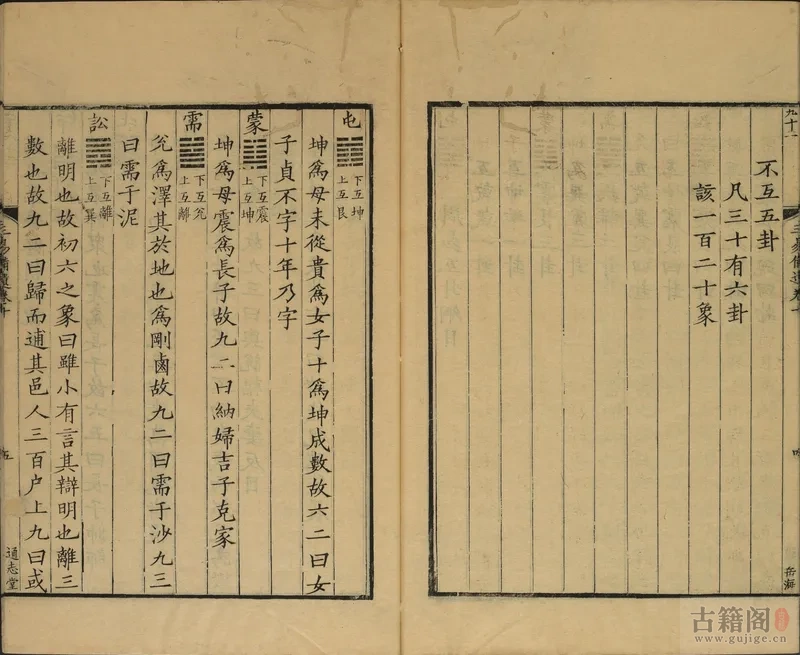 不互五卦
凡三十有六卦
該一百二十象
屯
下互坤
上互艮
坤爲母未從貴爲女子十爲坤成數故六二曰女
子貞不字十年乃字
蒙
下互震
上互坤
坤爲母震爲長子故九二曰納婦吉子克家
需
下互兊
上互離
兊爲澤其於地也爲剛鹵故九二曰需于沙九三
曰需于泥
訟
下互離
上互巽
離明也故初六之象曰雖小有言其辯明也離三
數也故九二曰歸而逋其邑人三百户上九曰或
通志堂
九十一
岳海
古籍阁
www.gujige.cn